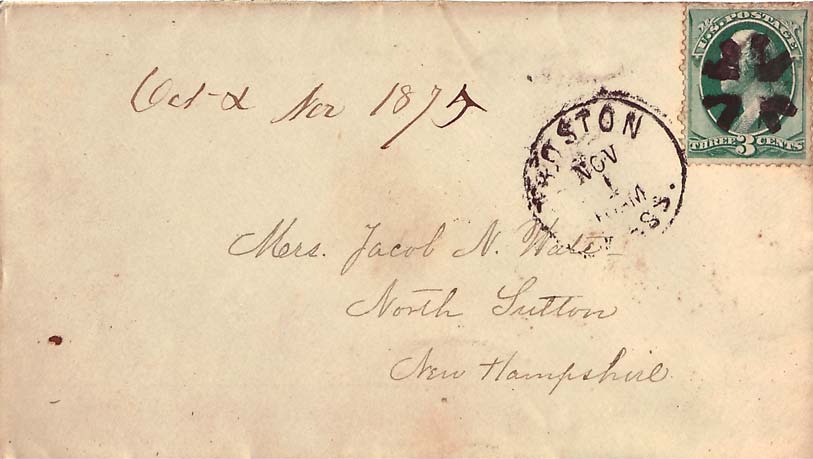 U.S. POSTAGE
THREE 3 CENTS
Oct & Nov 1875
BOSTON
NOV
1
SS.
Mrs. Jacob N.
North Sutton
New Hampshire